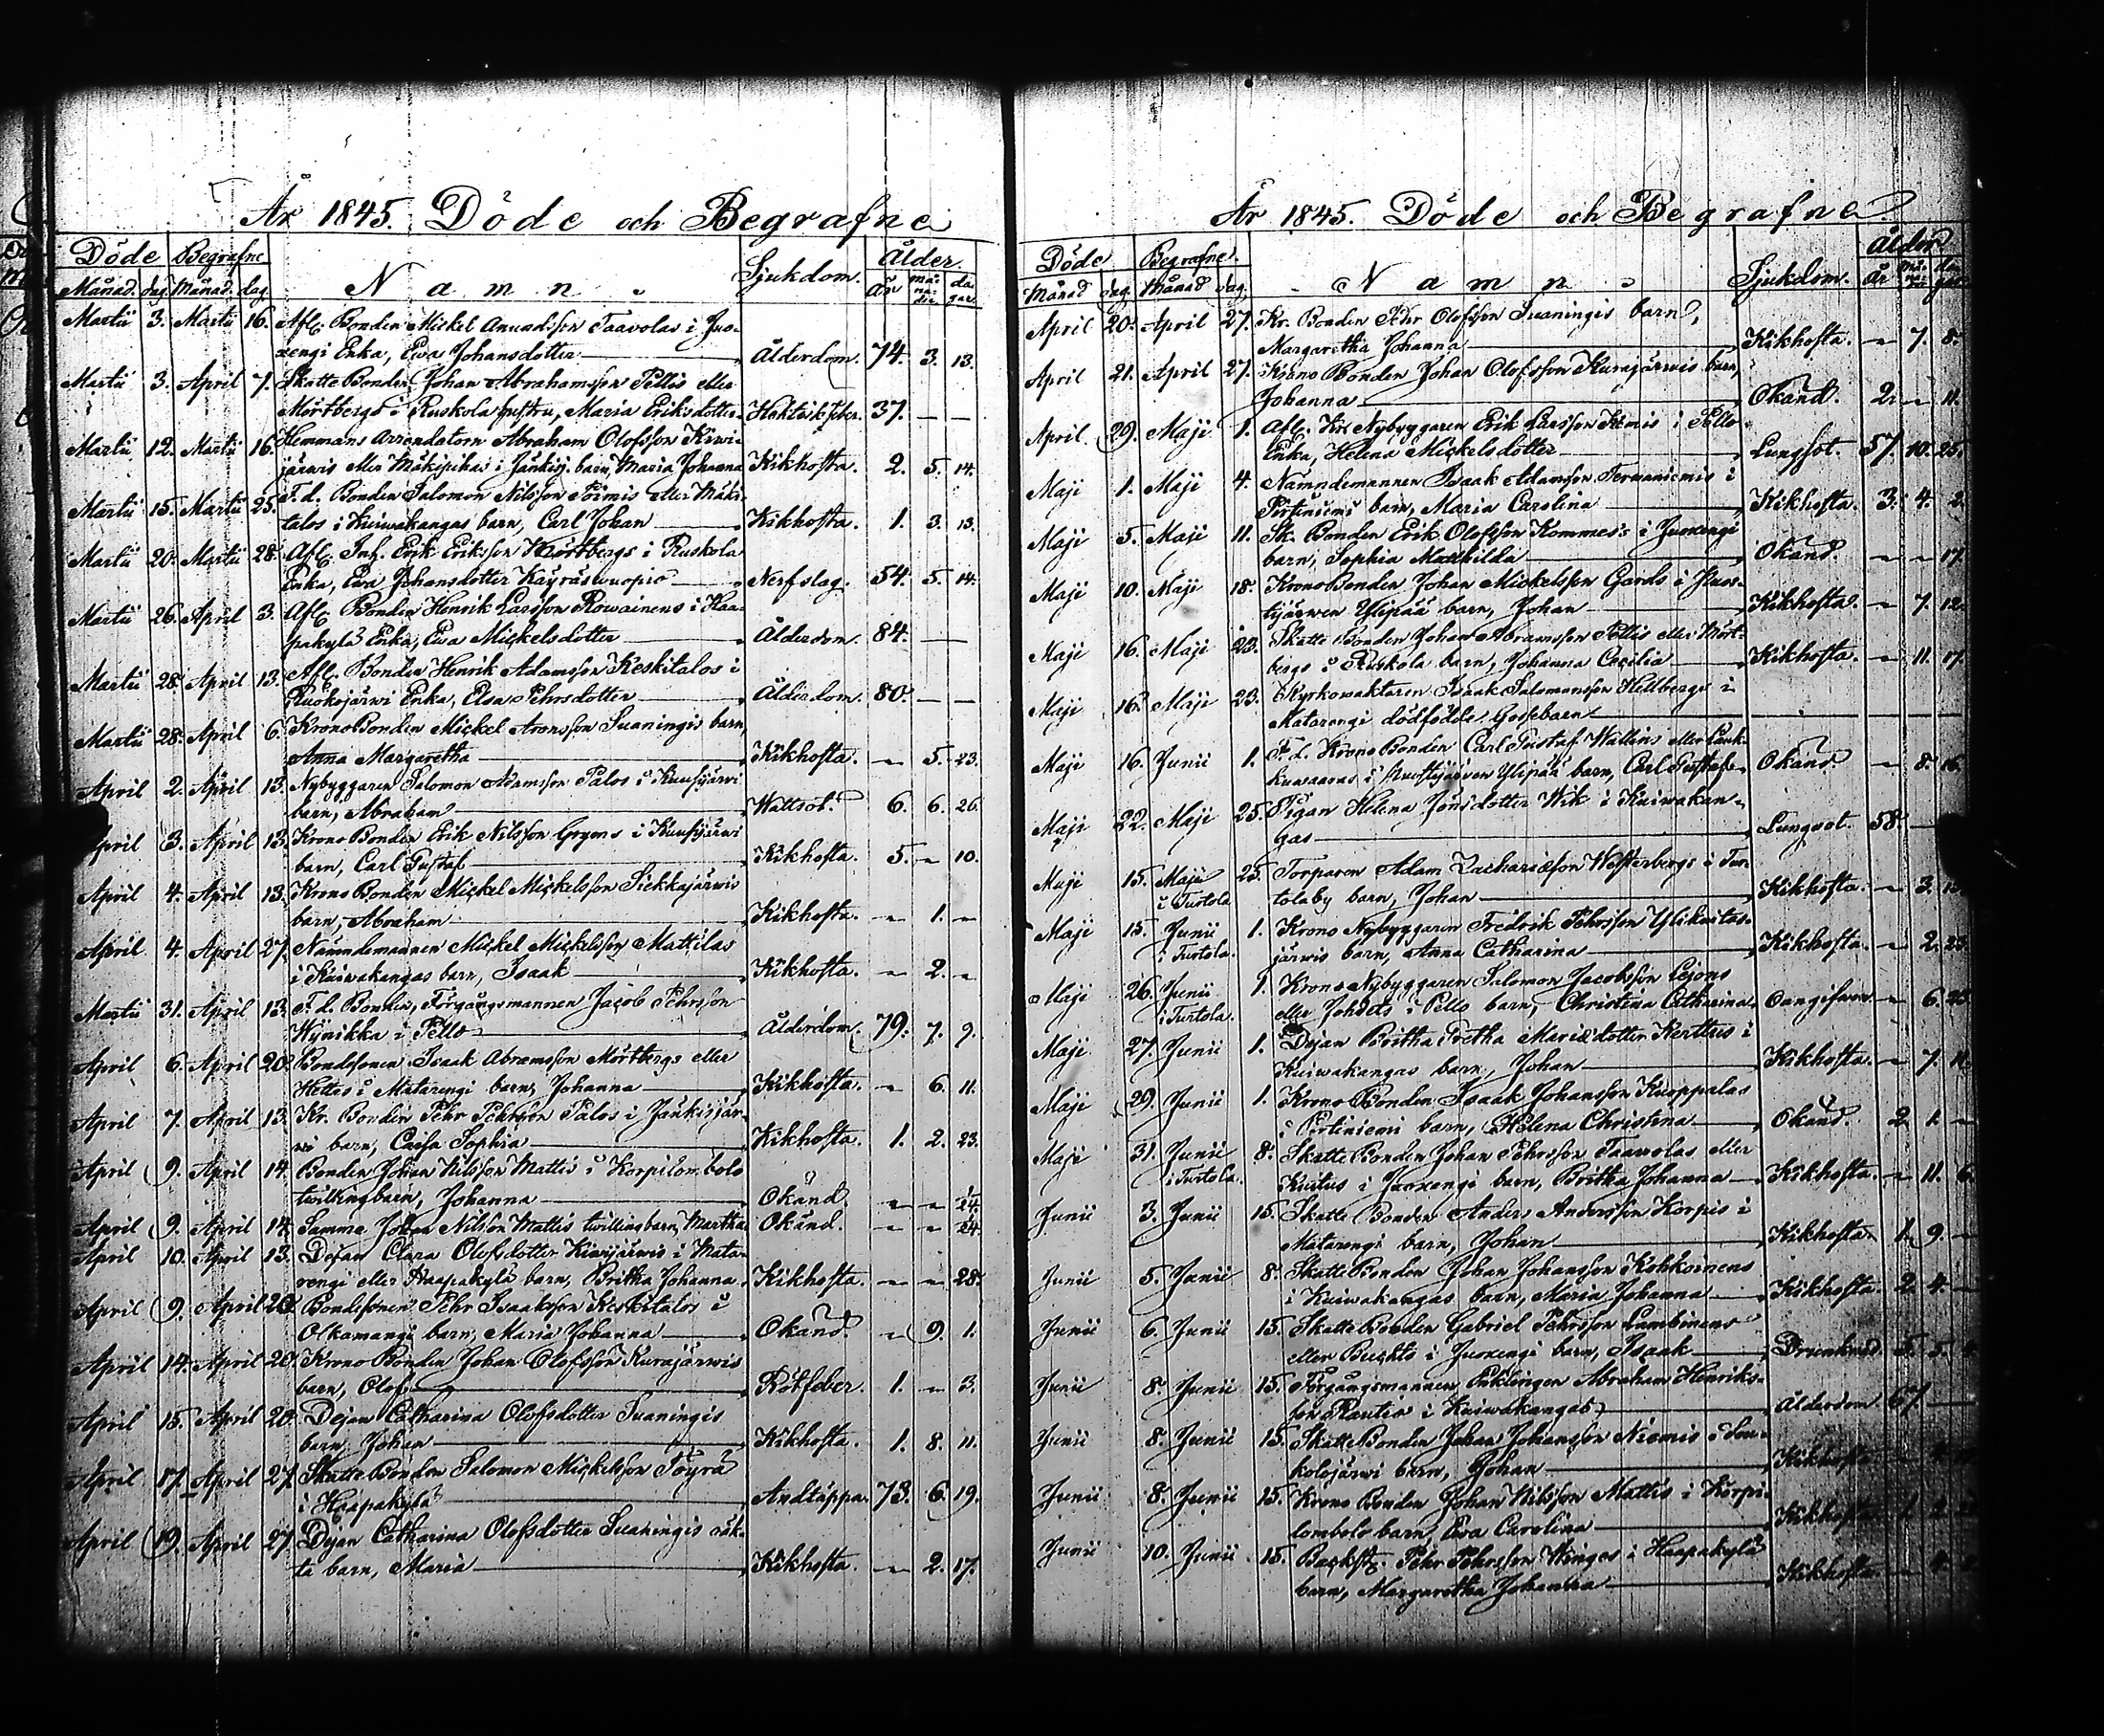 År 1845. Döde och Begrafne
Döde Begrafne Namn. Sjukdom. Ålder.
Månad. dag. Månad. dag. År må-na-der da-gar.
Martii 3. Martii 16. Afl. Bonden Mickel Taavolas i Juo-
xengi Enka, Ewa Johansdotter Ålderdom. 74. 3. 13.
Martii 3. April 7. Skatte Bonden Johan Abrahamsson Pellis eller
Mörtbergs i Ruskola hustru, Maria Eriksdotter Hektikfeber. 37. — —
Martii 12. Martii 16. Hemmans Arrendatorn Abraham Olofsson Kiwi-
järwis eller i Jänkisj. barn, Maria Johanna Kikhosta. 2. 5. 14.
Martii 15. Martii 25. F. d. Bonden Salomon Nilsson eller Mäki-
talos i Kuiwakangas barn, Carl Johan Kikhosta. 1. 3. 13.
Martii 20. Martii 28. Afl. Inh. Erik Eriksson Mörtbergs i Ruskola
Enka, Ewa Johansdotter Käyräswuopio Nerfslag. 54. 5. 14.
Martii 26. April 3. Afl. Bonden Henrik Larsson Rowainens i Haa-
pakylä Enka, Ewa Mickelsdotter Ålderdom. 84. — —
Martii 28. April 13. Afl. Bonden Henrik Adamsson Keskitalos i
Ruokojärwi Enka, Elsa Pehrsdotter Ålderdom. 80. — —
Martii 28. April 6. Krono Bonden Mickel Aronsson Suaningis barn,
Anna Margaretha Kikhosta. „ 5. 23.
April 2. April 13. Nybyggaren Salomon Adamsson Palos i Kuusijärwi
barn, Abraham Wattsot. 6. 6. 26.
April 3. April 13. Krono Bonden Erik Nilsson Gryms i Kuusijärwi
barn, Carl Gustaf Kikhosta. 5. „ 10.
April 4. April 13. Krono Bonden Mickel Mickelsson Siekkajärwis
barn, Abraham Kikhosta. „ 1. „
April 4. April 27. Nämndemannen Mickel Mickelsson Mattilas
i Kuiwakangas barn, Isaak Kikhosta. „ 2. „
Martii 31. April 13. F. d. Bonden, Förgångsmannen Jacob Pehrsson
Wynikka i Pello Ålderdom. 79. 7. 9.
April 6. April 20. Bondesonen Isaak Abramsson Mörtbergs eller
Hettes i Matarengi barn, Johanna Kikhosta. „ 6. 11.
April 7. April 13. Kr. Bonden Pehr Pehrsson Palos i Jänkisjär-
wi barn, Caisa Sophia Kikhosta. 1. 2. 23.
April 9. April 14. Bonden Johan Nilsson Mattis i Korpilombolo
twillingbarn, Johanna Okänd. „ „
April 9. April 14. Samme Johan Nilsson Mattis twillingbarn, Martha Okänd. „ „
April 10. April 13. Dejan Clara Olofsdotter Kiwijärwis i Mata-
rengi eller Haapakylä barn, Britha Johanna Kikhosta. „ „ 28.
April 9. April 20. Bondesonen Pehr Isaaksson Keskitalos i
Olkamangi barn, Maria Johanna Okänd. „ 9. 1.
April 14. April 20. Krono Bonden Johan Olofsson Kurajärwis
barn, Olof Rötfeber. 1. „ 3.
April 15. April 20. Dejan Catharina Olofsdotter Suaningis
barn, Johan Kikhosta. 1. 8. 11.
April 17. April 27. Skatte Bonden Salomon Mickelsson Töyrä
i Haapakylä Andtäppa. 73. 6. 19.
April 19. April 27. Dejan Catharina Olofsdotter Suaningis oäk-
ta barn, Maria Kikhosta. „ 2. 17.
År 1845. Döde och Begrafne
Döde Begrafne. Namn Sjukdom. Ålder
Månad dag. Månad dag. År må-na-der da-gar
April 20. April 27. Kr. Bonden Pehr Olofsson Suaningis barn,
Margaretha Johanna Kikhosta. „ 7. 8.
April 21. April 27. Krono Bonden Johan Olofsson Kurajärwis barn,
Johanna Okänd. 2. „ 11.
April 29. Maji 1. Afl. Kr. Nybyggaren Erik Larsson i Pello
Enka, Helena Mickelsdotter Lungsot. 57. 10. 25.
Maji 1. Maji 4. Nämndemannen Isaak Adamsson Terwaniemis i
Pirtiniemi barn, Maria Carolina Kikhosta. 3. 4. 2.
Maji 5. Maji 11. Sk. Bonden Erik Olofsson Kommes i Juoxengi
barn, Sophia Mathilda Okänd. „ „ 17.
Maji 10. Maji 18. Krono Bonden Johan Mickelsson Gards i Ruos-
tijärwen Ylipää barn, Johan Kikhosta. „ 7. 12.
Maji 16. Maji 23. Skatte Bonden Johan Abramsson Pellis eller Mört-
bergs i Ruskola barn, Johanna Cecilia Kikhosta. „ 11. 17.
Maji 16. Maji 23. Kyrkowaktaren Isaak Salomonsson Hellbergs i
Matarengi dödfödde Gossebarn
Maji 16. Junii 1. F. d. Krono Bonden Carl Gustaf Wallins eller Lauk-
i Ylipää barn, Carl Gustaf Okänd „ 8. 16.
Maji 22. Maji 25. Pigan Helena Jönsdotter Wik i Kuiwakan-
gas Lungsot. 58.
Maji 15. Maji 25. Torparen Adam Zachariasson Westerbergs i Tur-
i Turtola tolaby barn, Johan Kikhosta. „ 3.
Maji 15. Junii 1. Krono Nybyggaren Fredrik Pehrsson
i Turtola. järwis barn, Anna Catharina Kikhosta. „ 2. 23.
Maji 26. Junii 1. Krono Nybyggaren Salomon Jacobsson Lejons
i Turtola. eller i Pello barn, Christina Catharina „ 6.
Maji 27. Junii 1. Dejan Britha Greta Mariädotter Kerttus i
Kuiwakangas barn, Johan Kikhosta. „ 7. 11.
Maji 29. Junii 1. Krono Bonden Isaak Johansson Kuoppalas
i Pirtiniemi barn, Helena Christina Okänd. 2 1. „
Maji 31. Junii 8. Skatte Bonden Johan Pehrsson Taavolas eller
i Turtola. Kuitus i Juoxengi barn, Britha Johanna Kikhosta. „ 11. 6.
Junii 3. Junii 15. Skatte Bonden Anders Andersson Korpis i
Matarengi barn, Johan Kikhosta. 1. 9. „
Junii 5. Junii 8. Skatte Bonden Johan Johansson Kohkoinens
i Kuiwakangas barn, Maria Johanna Kikhosta. 2. 4. „
Junii 6. Junii 15. Skatte Bonden Gabriel Pehrsson Lambinens
eller Buchts i Juoxengi barn, Isaak Drunknad. 5. 5.
Junii 8. Junii 15. Förgångsmannen, Enklingen Abraham Henriks-
son Rautio i Kuiwakangas Ålderdom. 67.
Junii 8. Junii 15. Skatte Bonden Johan Johansson Niemis i Lou-
kolojärwi barn, Johan Kikhosta
Junii 8. Junii 15. Krono Bonden Johan Nilsson Mattis i Korpi-
lombolo barn, Ewa Carolina Kikhosta
Junii 10. Junii 15. Backst. Pehr Pehrsson Winges i Haapakylä
barn, Margaretha Johanna Kikhosta